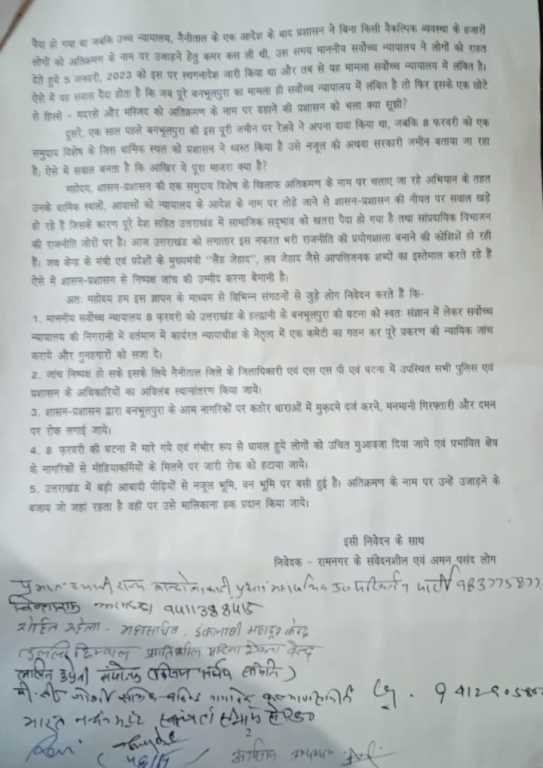 पैदा हो गया था जबकि उच्च न्यायालय, नैनीताल के एक आदेश के बाद प्रशासन ने बिना किसी वैकल्पिक व्यवस्था के हजारों
लोगों को अतिक्रमण के नाम पर उजाड़ने हेतु कमर कस ली थी, उस समय माननीय सर्वोच्च न्यायालय ने लोगों को राहत
देते हुये 5 जनवरी, 2023 को इस पर स्थगनादेश जारी किया था और तब से यह मामला सर्वोच्च न्यायालय में लंबित है।
ऐसे में यह सवाल पैदा होता है कि जब पूरे बनभूलपुरा का मामला ही सर्वोच्च न्यायालय में लंबित है तो फिर इसके एक छोटे
से हिस्से - मदरसे और मस्जिद को अतिक्रमण के नाम पर ढहाने की प्रशासन को भला क्या सूझी?
दूसरे, एक साल पहले बनभूलपुरा की इस पूरी जमीन पर रेलवे ने अपना दावा किया था, जबकि 8 फरवरी को एक
समुदाय विशेष के जिस धार्मिक स्थल को प्रशासन ने ध्वस्त किया है उसे नजूल की अथवा सरकारी जमीन बताया जा रहा
है; ऐसे में सवाल बनता है कि आखिर ये पूरा माजरा क्या है?
महोदय, शासन-प्रशासन की एक समुदाय विशेष के खिलाफ अतिक्रमण के नाम पर चलाए जा रहे अभियान के तहत
उनके धार्मिक स्थलों, आवासों को न्यायालय के आदेश के नाम पर तोड़े जाने से शासन-प्रशासन की नीयत पर सवाल खड़े
हो रहे है जिसके कारण पूरे देश सहित उत्तराखंड में सामाजिक सद्भाव को खतरा पैदा हो गया है तथा सांप्रदायिक विभाजन
की राजनीति जोरों पर है। आज उत्तराखंड को लगातार इस नफरत भरी राजनीति की प्रयोगशाला बनाने की कोशिशें हो रही
हैं। जब केन्द्र के मंत्री एवं प्रदेशों के मुख्यमंत्री "लैंड जेहाद", लव जेहाद जैसे आपत्तिजनक शब्दों का इस्तेमाल करते रहे हैं
ऐसे में शासन-प्रशासन से निष्पक्ष जांच की उम्मीद करना बेमानी है।
अतः महोदय हम इस ज्ञापन के माध्यम से विभिन्न संगठनों से जुड़े लोग निवेदन करते हैं कि-
1. माननीय सर्वोच्च न्यायालय 8 फरवरी को उत्तराखंड के हल्द्वानी के बनभूलपुरा की घटना को स्वतः संज्ञान में लेकर सर्वोच्च
न्यायालय की निगरानी में वर्तमान में कार्यरत न्यायाधीश के नेतृत्व में एक कमेटी का गठन कर पूरे प्रकरण की न्यायिक जांच
कराये और गुनहगारों को सजा दे।
2. जांच निष्पक्ष हो सके इसके लिये नैनीताल जिले के जिलाधिकारी एवं एस एस पी एवं घटना में उपस्थित सभी पुलिस एवं
प्रशासन के अधिकारियों का अविलंब स्थानांतरण किया जाये।
3. शासन-प्रशासन द्वारा बनभूलपुरा के आम नागरिकों पर कठोर धाराओं में मुकदमे दर्ज करने, मनमानी गिरफ्तारी और दमन
पर रोक लगाई जाये।
4. 8 फरवरी की घटना में मारे गये एवं गंभीर रूप से घायल हुये लोगों को उचित मुआवजा दिया जाये एवं प्रभावित क्षेत्र
के नागरिकों से मीडियाकर्मियों के मिलने पर जारी रोक को हटाया जाये।
5. उत्तराखंड में बड़ी आबादी पीढ़ियों से नजूल भूमि, वन भूमि पर बसी हुई है। अतिक्रमण के नाम पर उन्हें उजाड़ने के
बजाय जो जहां रहता है वहीं पर उसे मालिकाना हक प्रदान किया जाये।
इसी निवेदन के साथ
निवेदक - रामनगर के संवेदनशील एवं अमन पसंद लोग
प्रभात ध्यानी राज्य आन्दोलनकारी प्रधान महासचिव उ०परिवर्तन पार्टी
9411388415
रोहित रुहेला - महासचिव, इंकलाबी मजदूर केन्द्र
प्रगतिशील महिला एकता केन्द्र
ललित उप्रेती संयोजक
जोशी सचिव
2